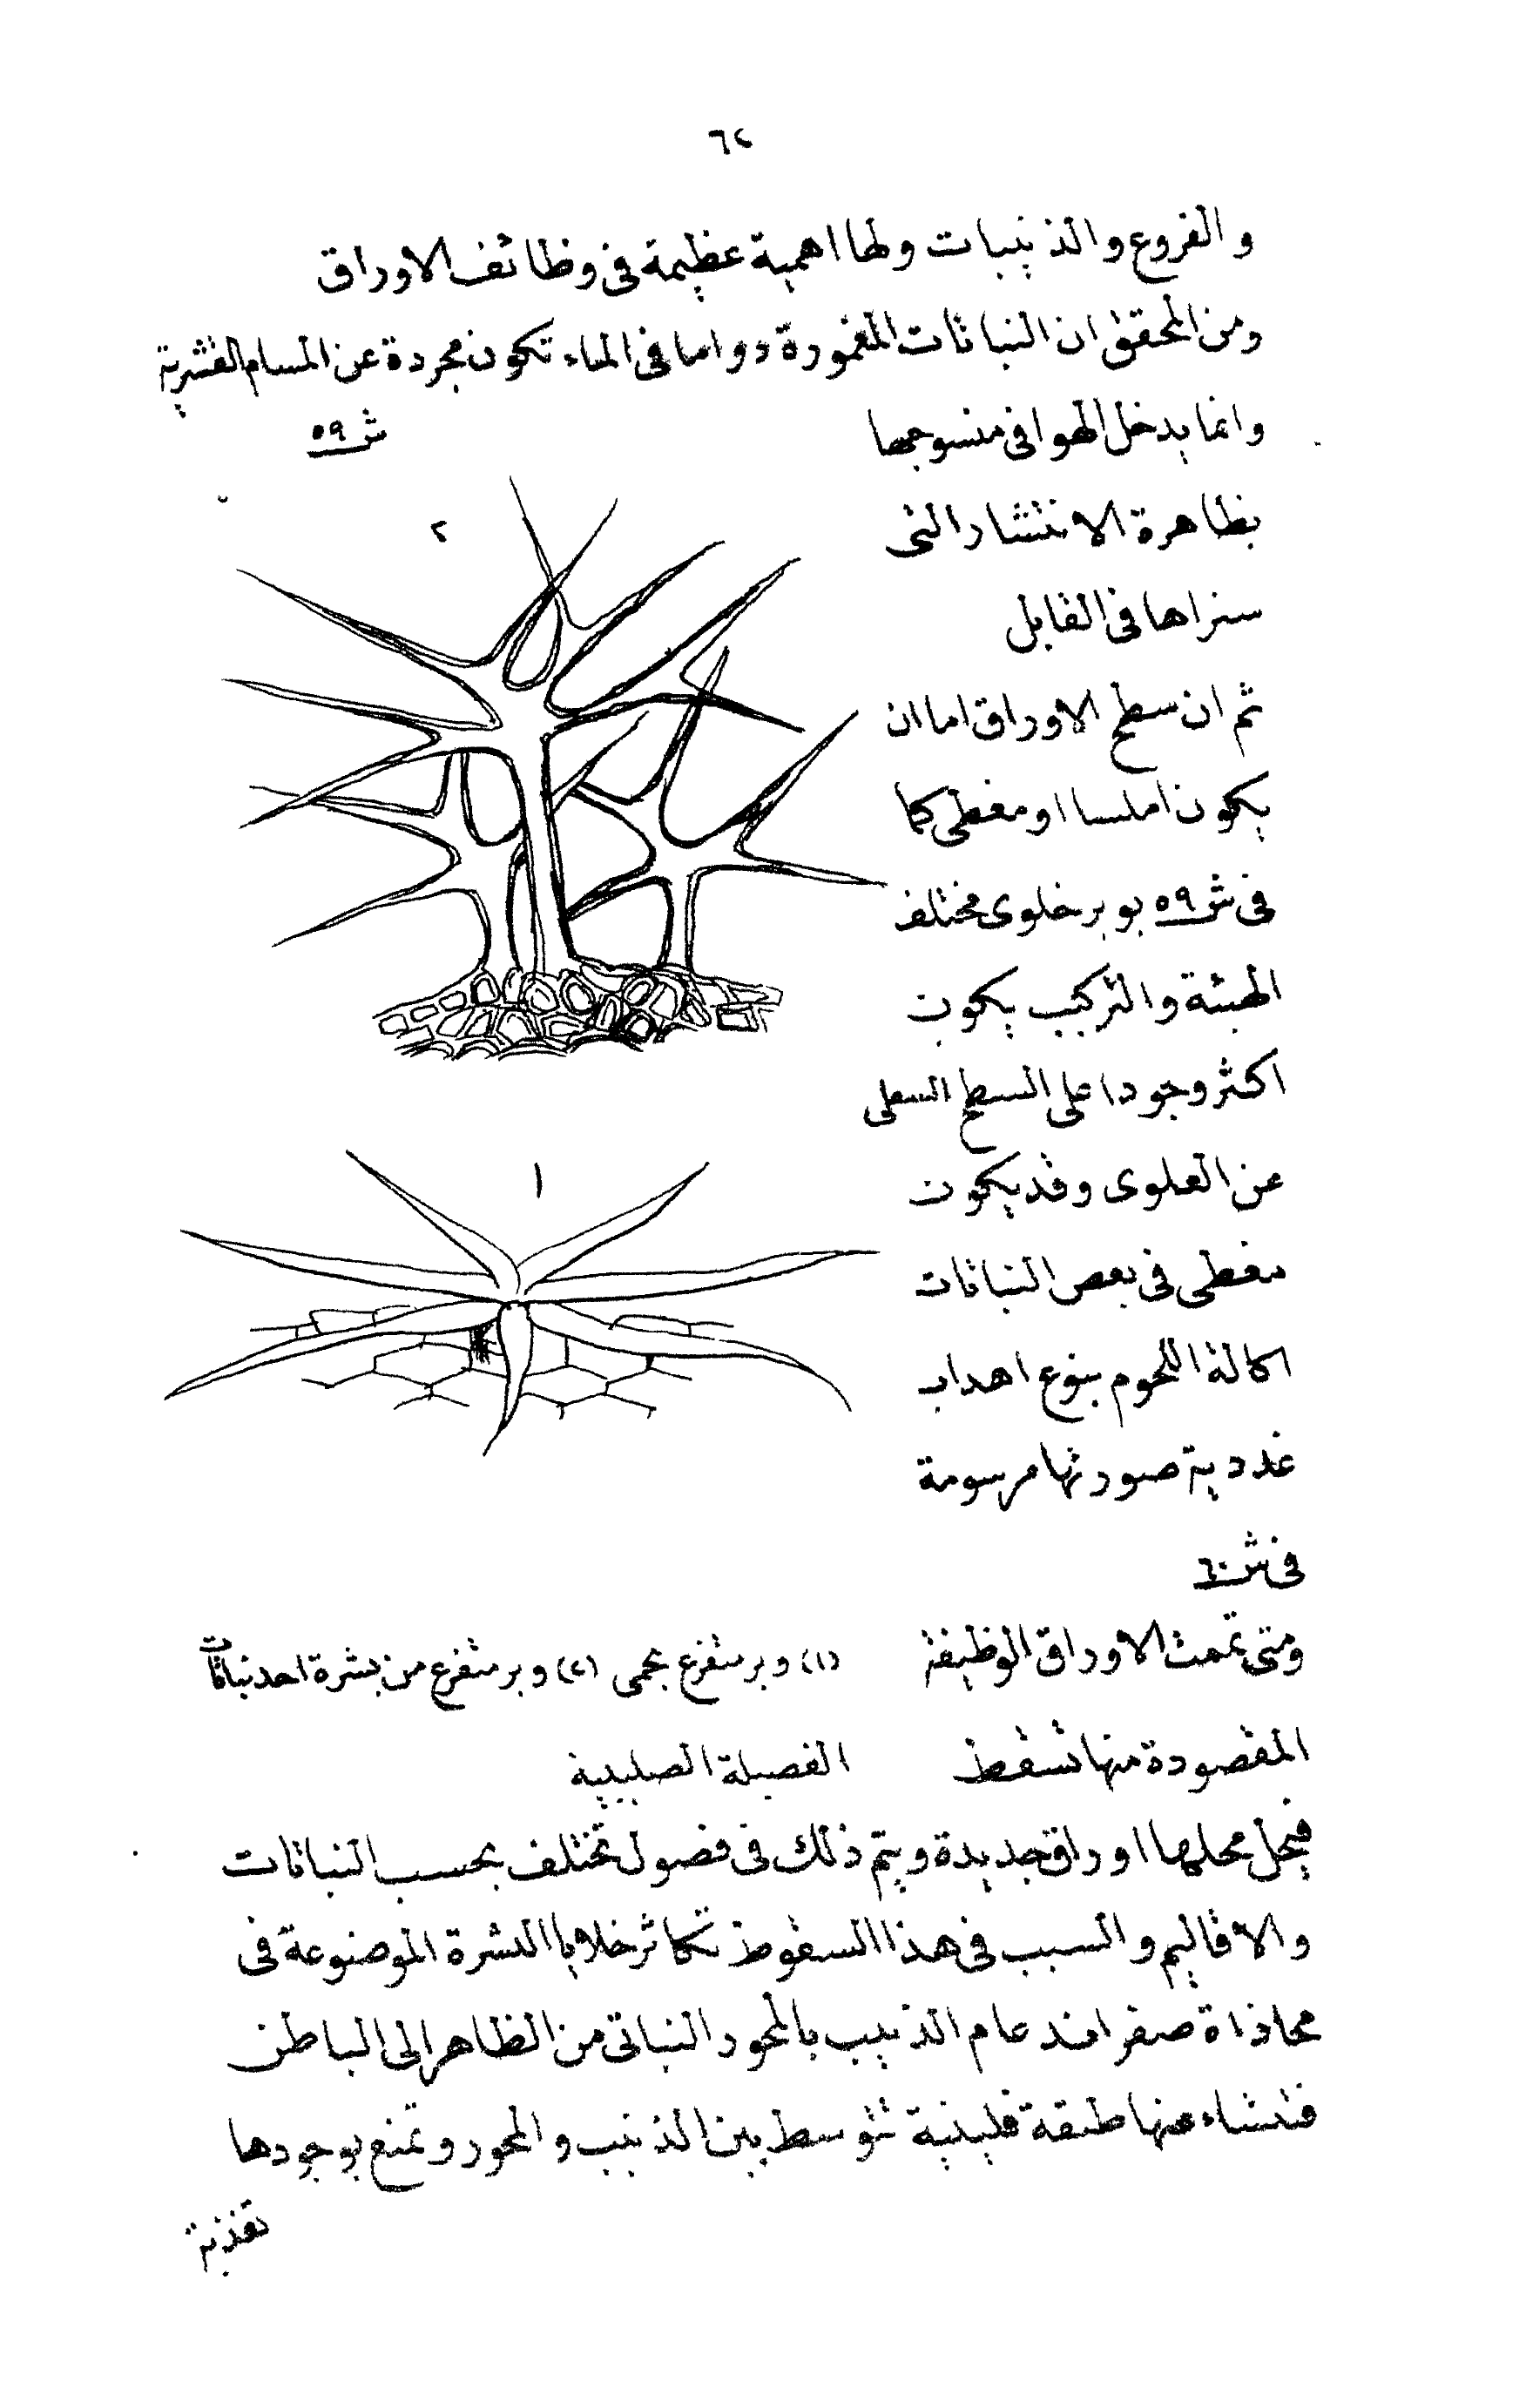 ٦٢
والفروع والذنيبات ولها اهمية عظيمة فى وظائف الاوراق
ومن المحقق ان النباتات المغمورة دواما فى الماء تكون مجردة عن المسام القشرية
وانما يدخل الهوا فى منسوجها
ش ٥٩
بظاهرة الانتشار التى
٢
سنراها فى القابل
ثم ان سطح الاوراق اما ان
يكون املسا او مغطى كما
فى ش ٥٩ بوبر خلوى مختلف
الهيئة والتركيب يكون
اكثر وجودا على السطح السفلى
عن العلوى وقد يكون
١
مغطى فى بعض النباتات
اكالة اللحوم بنوع اهداب
غددية صورتها مرسومة
فى ش ٦٠
ومتى تممت الاوراق الوظيفة
(١) وبر متفرع نجمى (٢) وبر متفرع من بشرة احد نباتات
المقصودة منها تسقط
الفصيلة الصليبية
فيحل محلها اوراق جديدة ويتم ذلك فى فصول تختلف بحسب النباتات
والاقاليم والسبب فى هذا السقوط تكاثر خلايا البشرة الموضوعة فى
محاذاة صفر اندعام الذنيب بالمحور النباتى من الظاهر الى الباطن
فتنشاء عنها طبقة فلينية تتوسط بين الذنيب والمحور وتمنع بوجودها
تغذية